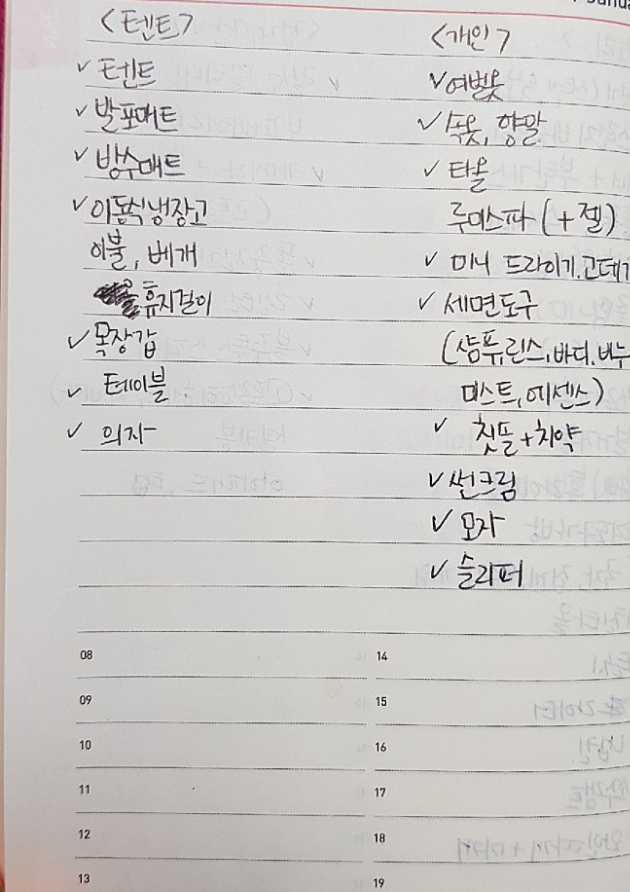 <텐트>
✓ 텐트
✓ 발포매트
✓ 방수매트
✓ 이동식냉장고
이불, 베개
휴지걸이
✓ 목장갑
✓ 테이블
✓ 의자
<개인>
✓ 여벌옷
✓ 속옷, 양말
✓ 타올
루미스파 (+젤)
✓ 미니 드라이기.고데기
✓ 세면도구
(샴퓨,린스,바디.비누
미스트, 에센스)
✓ 칫솔+치약
✓ 썬크림
✓ 모자
✓ 슬리퍼
08
09
10
11
12
13
14
15
16
17
18
19